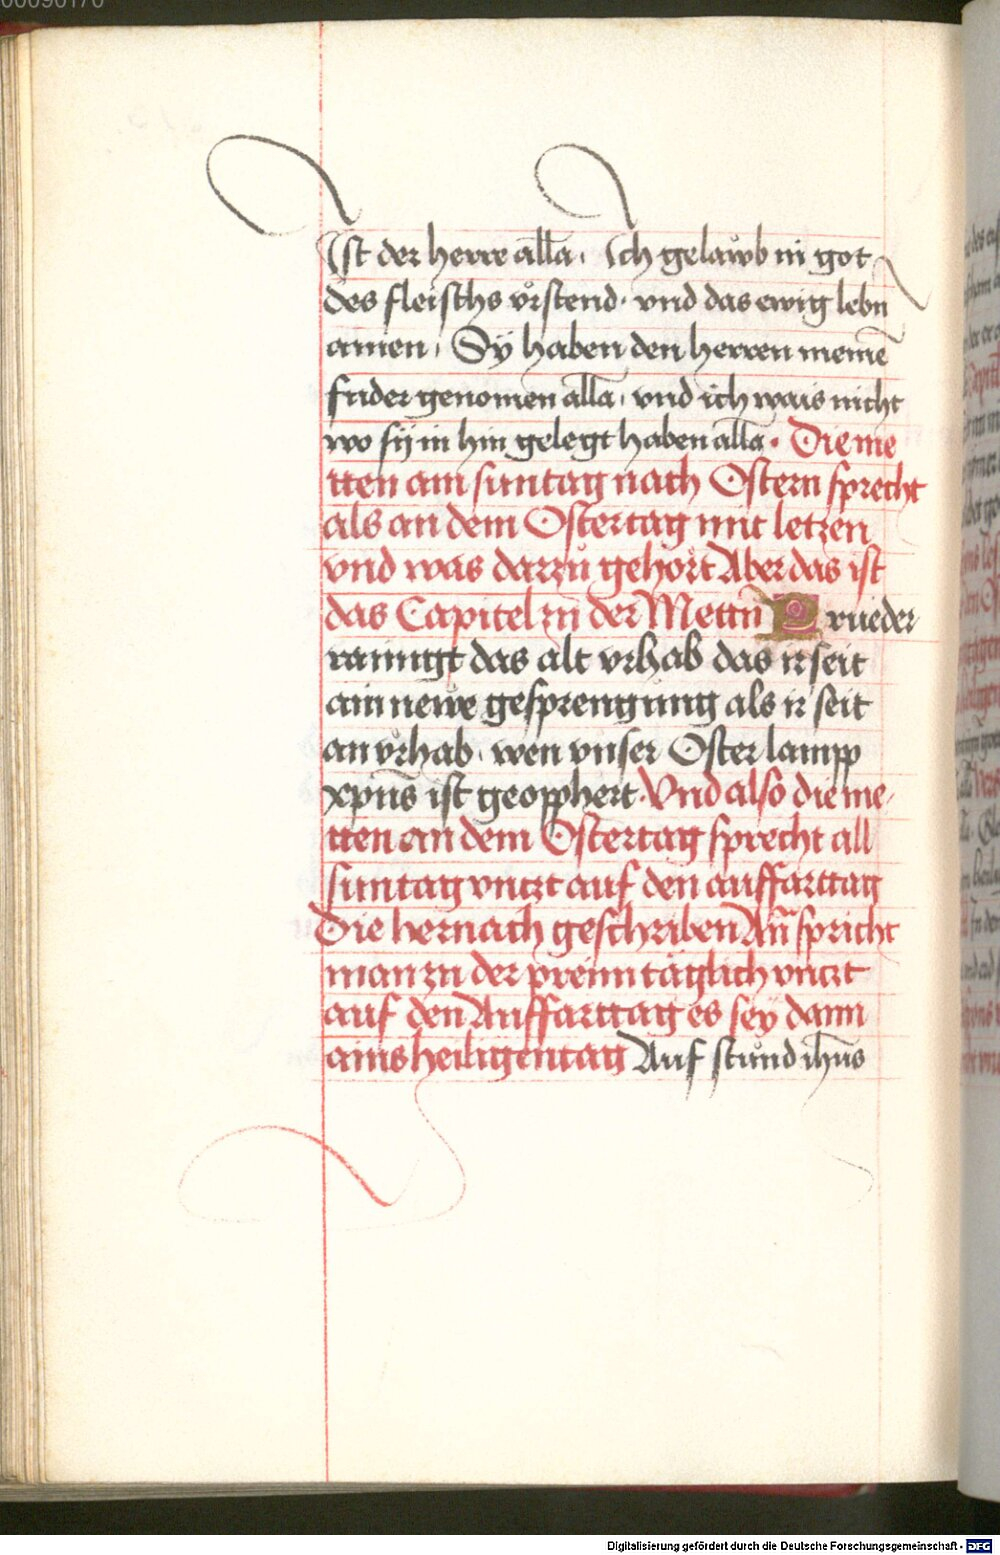 00090170
Ist der herre alla. Ich gelawb in got
des fleischs vrstend. vnd das ewig lebn
amen. Sy haben den herren meinē
frider genomen alla. vnd ich wais nicht
wo sy in hin gelegt haben alla. Die me
tten am suntag nach Ostern sprecht
als an dem Ostertag mit letzen
vnd was darzů gehört Aber das ist
das Capitel zu der Mettn Brueder
rainigt das alt vrhab das ir seit
ain newe gesprengung als ir seit
an vrhab. wen vnser Oster lampp
xpūs ist geopphert. Vnd also die me
tten an dem Ostertag sprecht all
suntag vntzt auf den auffarttag
Die hernach geschriben Añ spricht
man zu der preim täglich vntzt
auf den Auffarttag es sey dann
ains heiligentag Auf stůnd ihūs
Digitalisierung gefördert durch die Deutsche Forschungsgemeinschaft - DFG